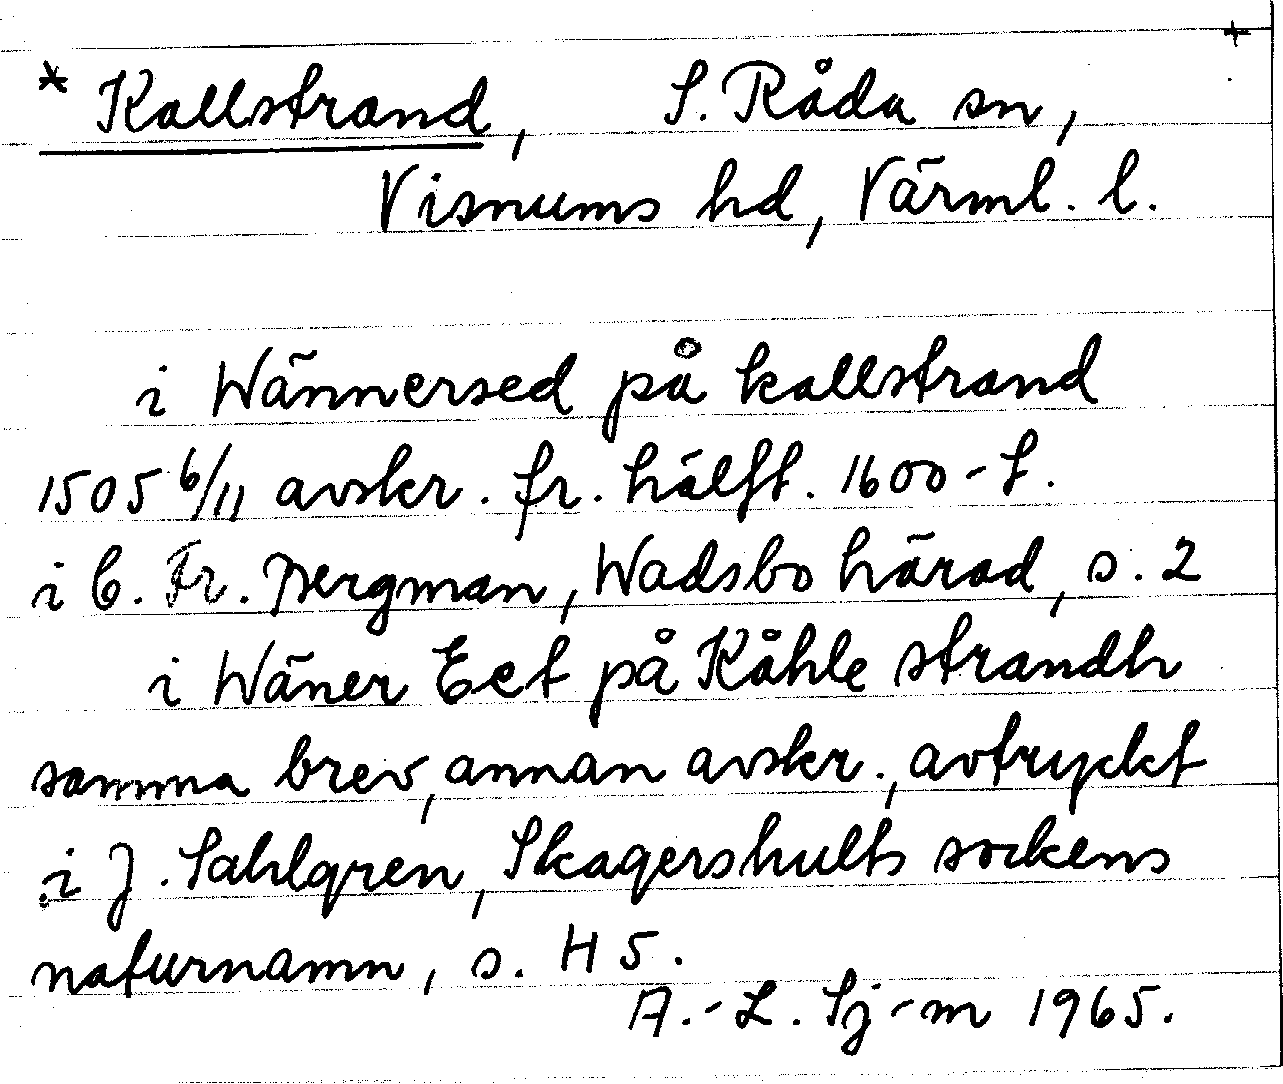 +
* Kallstrand, S. Råda sn,
Visnums hd, Värml. l.
i Wännersed på kallstrand
1505 6/11 avskr. fr. hälft. 1600-t.
i C. Fr. Bergman, Wadsbo härad, s. 2
i Wäner Eet på Kåhle strandh
samma brev, annan avskr., avtryckt
i J. Sahlgren, Skagershults sockens
naturnamn, s. H 5.
A.-L. Sj-m 1965.